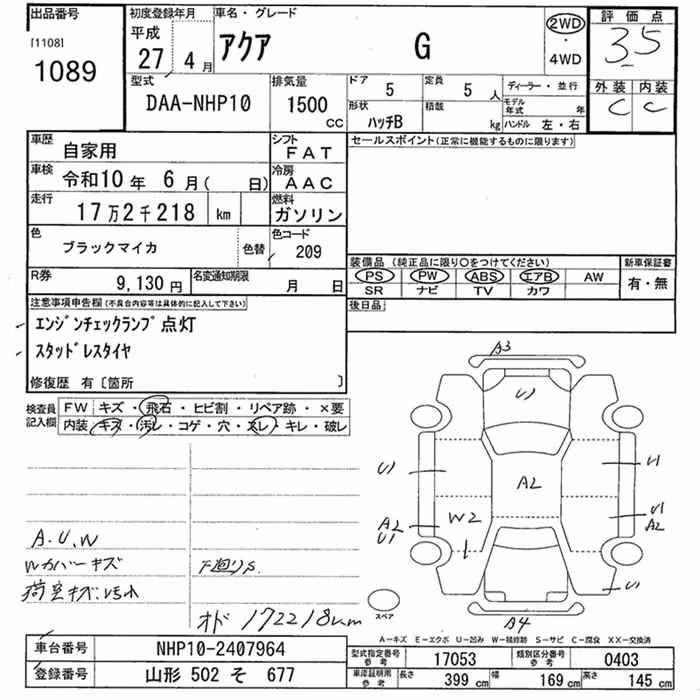 出品番号
[1108]
1089
初度登録年月
平成
27 4月
車名・グレード
アクア G
2WD
・
4WD
評価点
3.5
外装 内装
C C
型式
DAA-NHP10
排気量
1500
CC
ドア
5
定員
5 人
ディーラー・並行
形状
ハッチB
積載
kg
モデル年式 年
ハンドル 左・右
車歴
自家用
シフト
FAT
車検
令和10年 6月( 日)
冷房
AAC
走行
17万2千218 km
燃料
ガソリン
色
ブラックマイカ
色替
色コード
209
R券
9,130円
名変通知期限
月 日
セールスポイント(正常に機能するものに限ります)
装備品(純正品に限り○をつけてください)
新車保証書
PS PW ABS エアB AW
SR ナビ TV カワ
有・無
後日品
注意事項申告欄(不具合内容等は具体的に記入して下さい)
エンジンチェックランプ点灯
スタッドレスタイヤ
修復歴 有〔箇所 〕
検査員
記入欄
FW キズ・飛石・ヒビ割・リペア跡・×要
内装 キズ・汚レ・コゲ・穴・スレ・キレ・破レ
A.U.W
Wカバーキズ
荷室キズ.汚れ
下廻りS.
オド 172218km
A3
U1
U1
U1
A2
W2
A2
U1
U1
A2
U1
A4
スペア
A-キズ E-エクボ U-凹み W-補修跡 S-サビ C-腐食 XX-交換済
車台番号
NHP10-2407964
登録番号
山形 502 そ 677
型式指定番号
参考
17053
類別区分番号
参考
0403
車庫証明用
参考
長さ 399 cm
幅 169 cm
高さ 145 cm